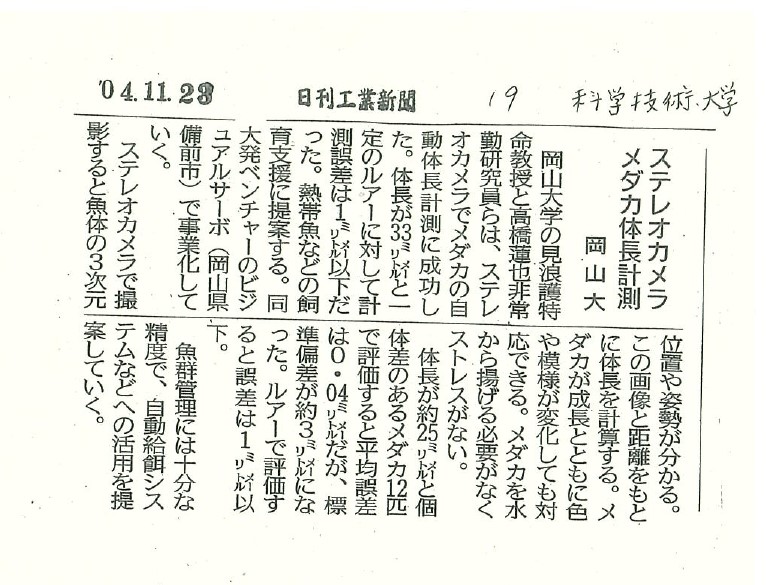 '04.11.23
日刊工業新聞
19
科学技術、大学
ステレオカメラ
メダカ体長計測
岡山大
岡山大学の見浪護特
命教授と高橋蓮也非常
勤研究員らは、ステレ
オカメラでメダカの自
動体長計測に成功し
た。体長が33㍉㍍と一
定のルアーに対して計
測誤差は1㍉㍍以下だ
った。熱帯魚などの飼
育支援に提案する。同
大発ベンチャーのビジ
ュアルサーボ（岡山県
備前市）で事業化して
いく。
ステレオカメラで撮
影すると魚体の3次元
位置や姿勢が分かる。
この画像と距離をもと
に体長を計算する。メ
ダカが成長とともに色
や模様が変化しても対
応できる。メダカを水
から揚げる必要がなく
ストレスがない。
体長が約25㍉㍍と個
体差のあるメダカ12匹
で評価すると平均誤差
は0・04㍉㍍だが、標
準偏差が約3㍉㍍にな
った。ルアーで評価す
ると誤差は1㍉㍍以
下。
魚群管理には十分な
精度で、自動給餌シス
テムなどへの活用を提
案していく。